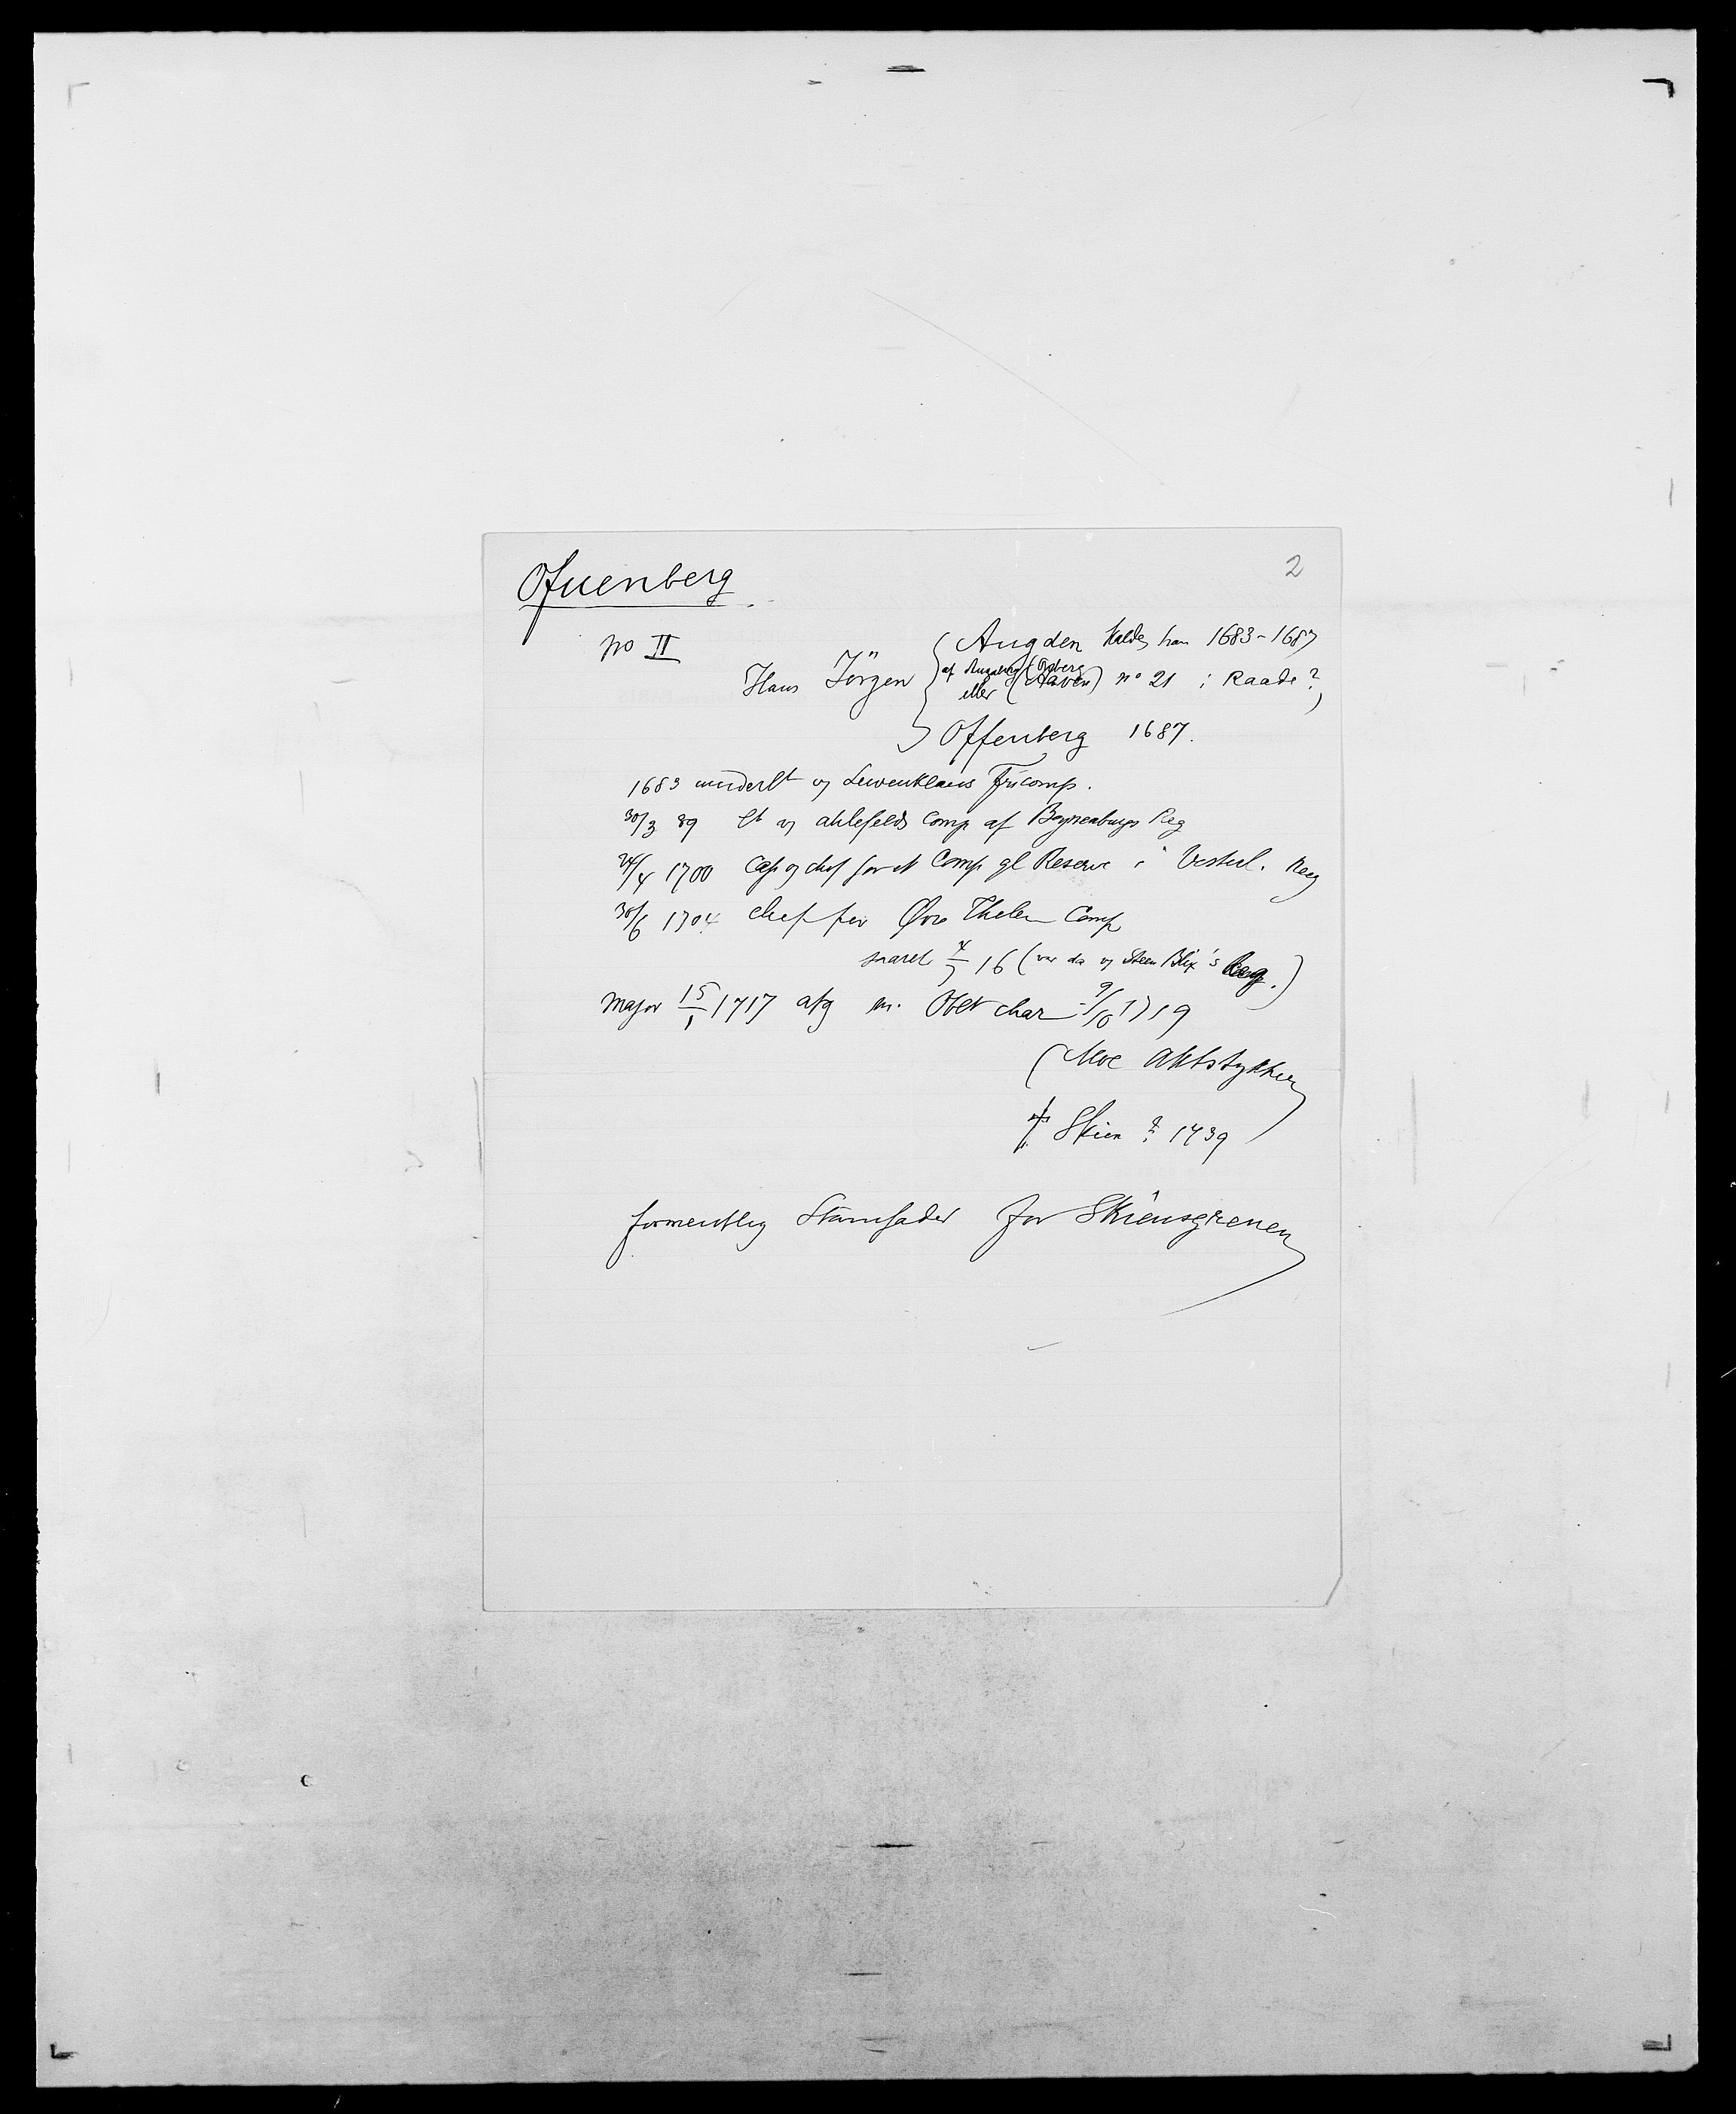 Ofuenberg
2
no II
Augden kaldes han 1683-1687
Hans Jörgen
af Augaberg (Opberg
eller (Haven) no 21 i Raade?)
Offenberg 1687.
1683 underlt v Lewenklaus Fricomp.
30/3 89 Lt v Ahlefelds Comp af Boyneaburgs Reg
24/4 1700 Cap og chef for et Comp gl Reserve i Vesterl. Reg
30/6 1704 chef for Øvre Thelem Comp
saaret 4/7 16 (var da v Steen Blix's Reg.)
Major 15/1 1717 afg m. Oblt char 9/10 1719
(Moe Aktstykker)
† Skien ? 1739
formentlig Stamfader for Skiensgrenen